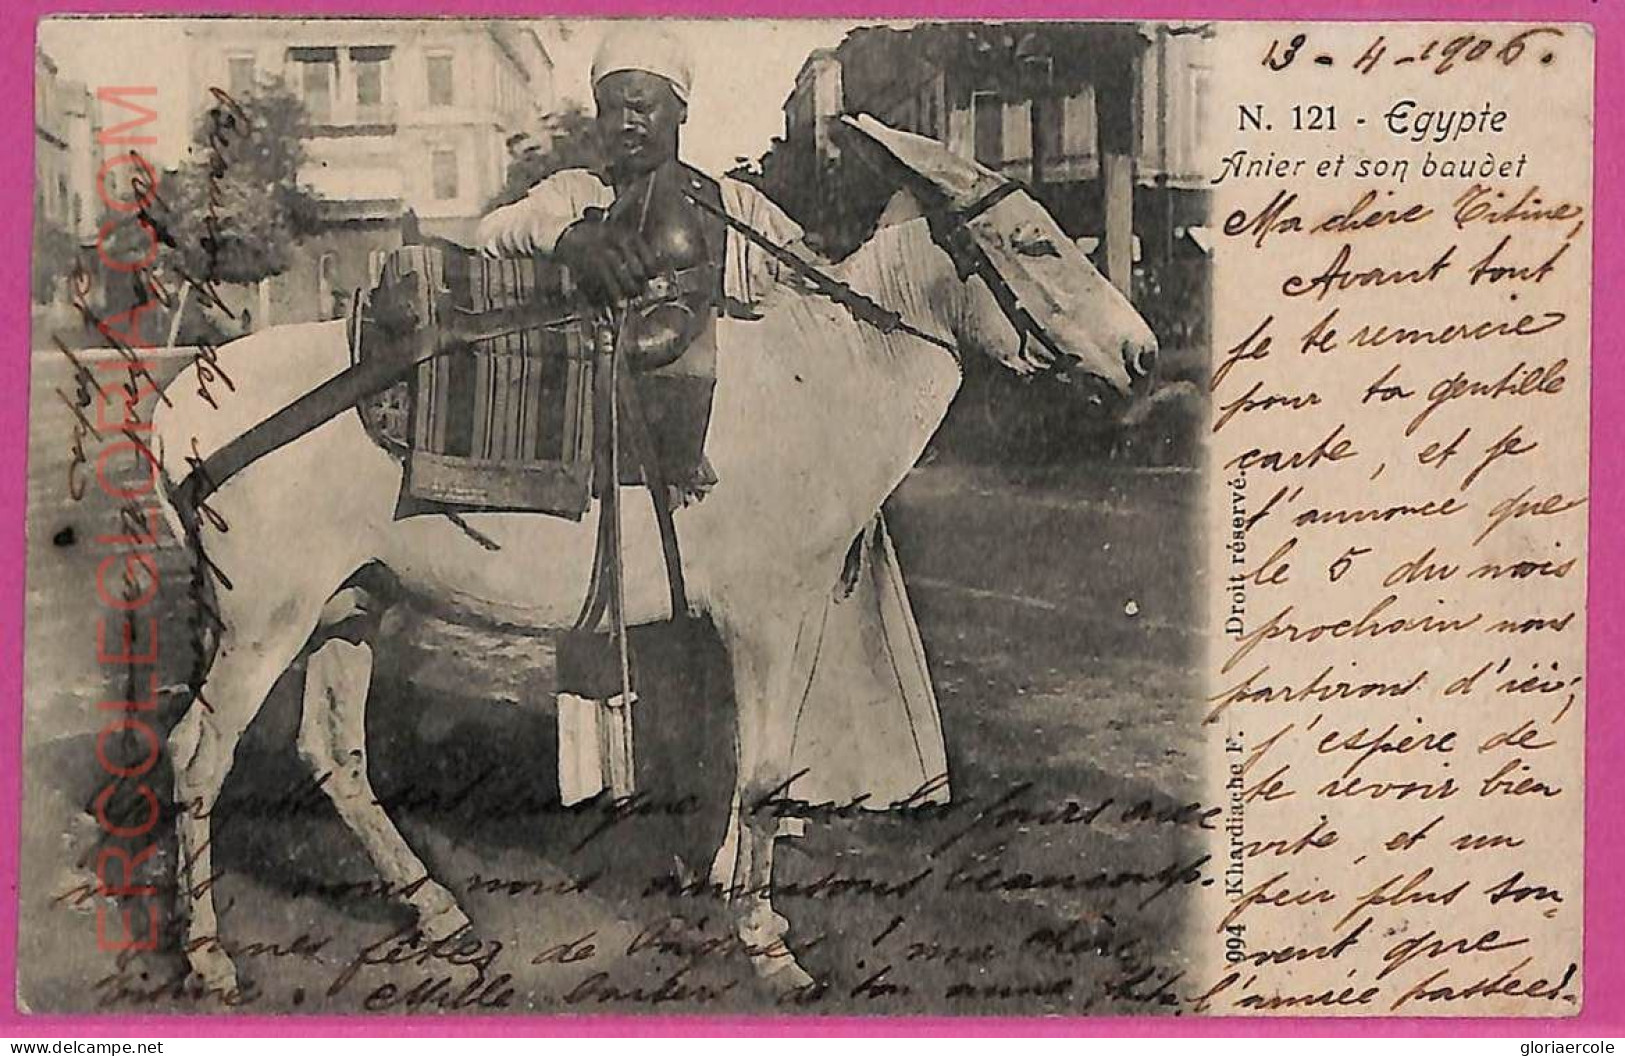 13-4-1906.
N. 121 - Egypte
Anier et son baudet
Ma chère Titine,
Avant tout
je te remercie
pour ta gentille
carte, et je
t'annonce que
le 5 du mois
prochain nous
partirons d'ici;
j'espère de
te revoir bien
vite, et un
peu plus sou-
vent que
l'année passée!
994 Khardiache F. Droit réservé.
presque tous les jours avec
nous nous amusons beaucoup.
Bonnes fêtes de Pâques! ma chère
Titine. Mille baisers de ton amie
ERCOLEGLORIA.COM
gloriaercole